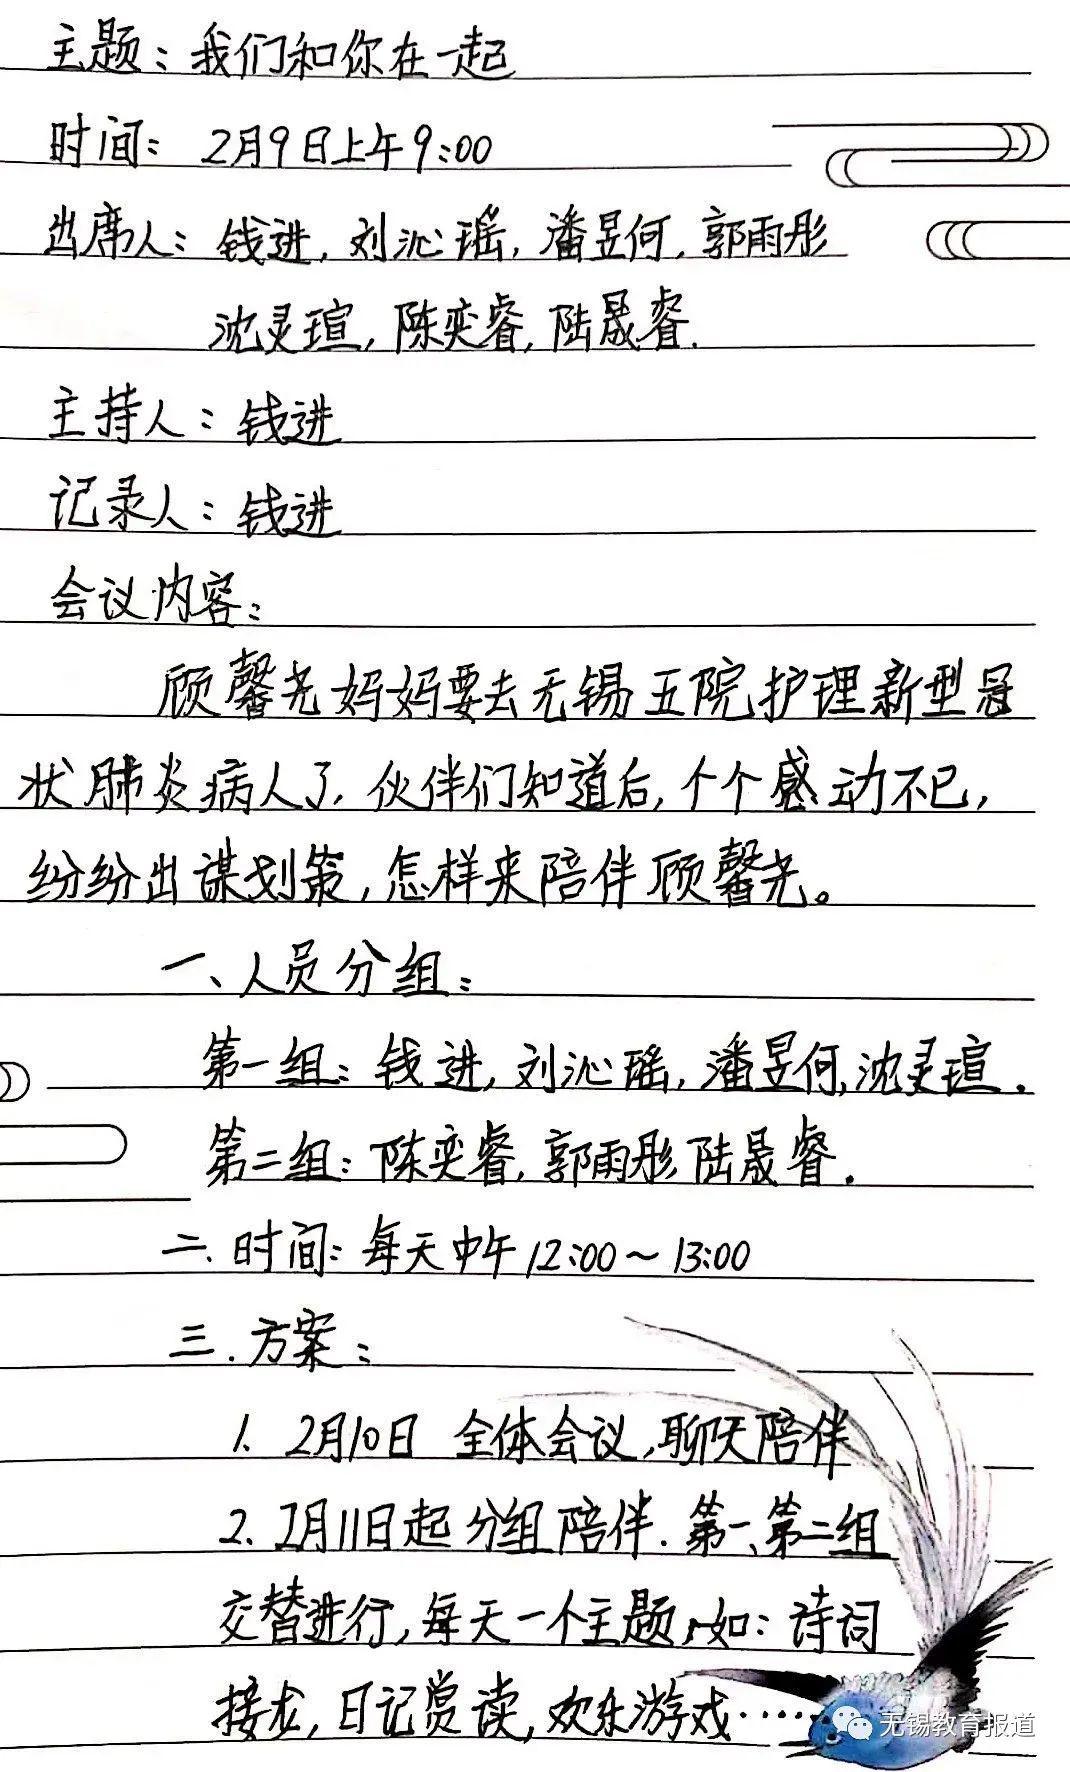 主题：我们和你在一起
时间： 2月9日上午9:00
出席人：钱进，刘沁瑶，潘昱何，郭雨彤
沈灵瑄，陈奕睿，陆晟睿.
主持人：钱进
记录人：钱进
会议内容：
顾馨尧妈妈要去无锡五院护理新型冠
状肺炎病人了，伙伴们知道后，个个感动不已，
纷纷出谋划策，怎样来陪伴顾馨尧。
一、人员分组：
第一组：钱进，刘沁瑶，潘昱何，沈灵瑄.
第二组：陈奕睿，郭雨彤 陆晟睿.
二.时间：每天中午12:00～13:00
三.方案：
1. 2月10日 全体会议，聊天陪伴
2. 2月11日起分组陪伴.第一、第二组
交替进行，每天一个主题，如：诗词
接龙，日记赏读，欢乐游戏……
无锡教育报道